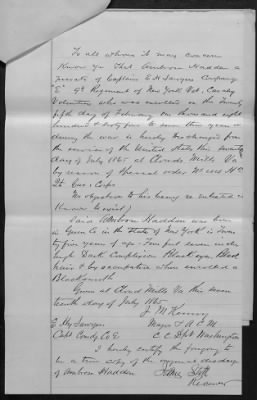 To all whom it may concern
Know ye That Ambrose Hadden a
private of Captain E H Sawyers Company
"E" 9th Regiment of New York Vol. Cavalry
Volunteers who was enrolled on the Twenty
fifth day of February one thousand eight
hundred & sixty five to serve three years or
during the war is hereby Discharged from
the service of the United States this
day of July 1865 at Clouds Mills Va
by reason of Special order No
Cav. Corps
No objection to his being re enlisted is
known to exist
Said Ambrose Hadden was born
in in the State of New York is Twen
ty five years of age Five feet seven inches
high Dark Complexion Black eyes Black
hair & by occupation when enrolled a
Blacksmith
Given at Cloud Mills Va this seven
teenth day of July 1865
J M
E Sawyer Major & A C M
Capt Comdg Co E C C Dpt Washington
I hereby certify the foregoing to
be a true copy of the original discharge
of Ambrose Hadden